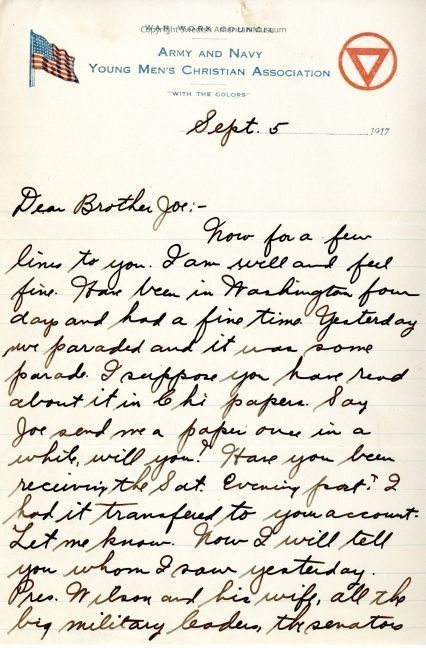 WAR WORK COUNCIL
ARMY AND NAVY
YOUNG MEN'S CHRISTIAN ASSOCIATION
"WITH THE COLORS"
Sept. 5 1917
Dear Brother Joe:-
Now for a few
lines to you. I am well and feel
fine. Have been in Washington four
days and had a fine time. Yesterday
we paraded and it was some
parade. I suppose you have read
about it in Chi papers. Say
Joe send me a paper once in a
while, will you? Have you been
receiving the Sat. Evening post? I
had it transfered to your account.
Let me know. Now I will tell
you whom I saw yesterday.
Pres. Wilson and his wife, all the
big military leaders, the senators